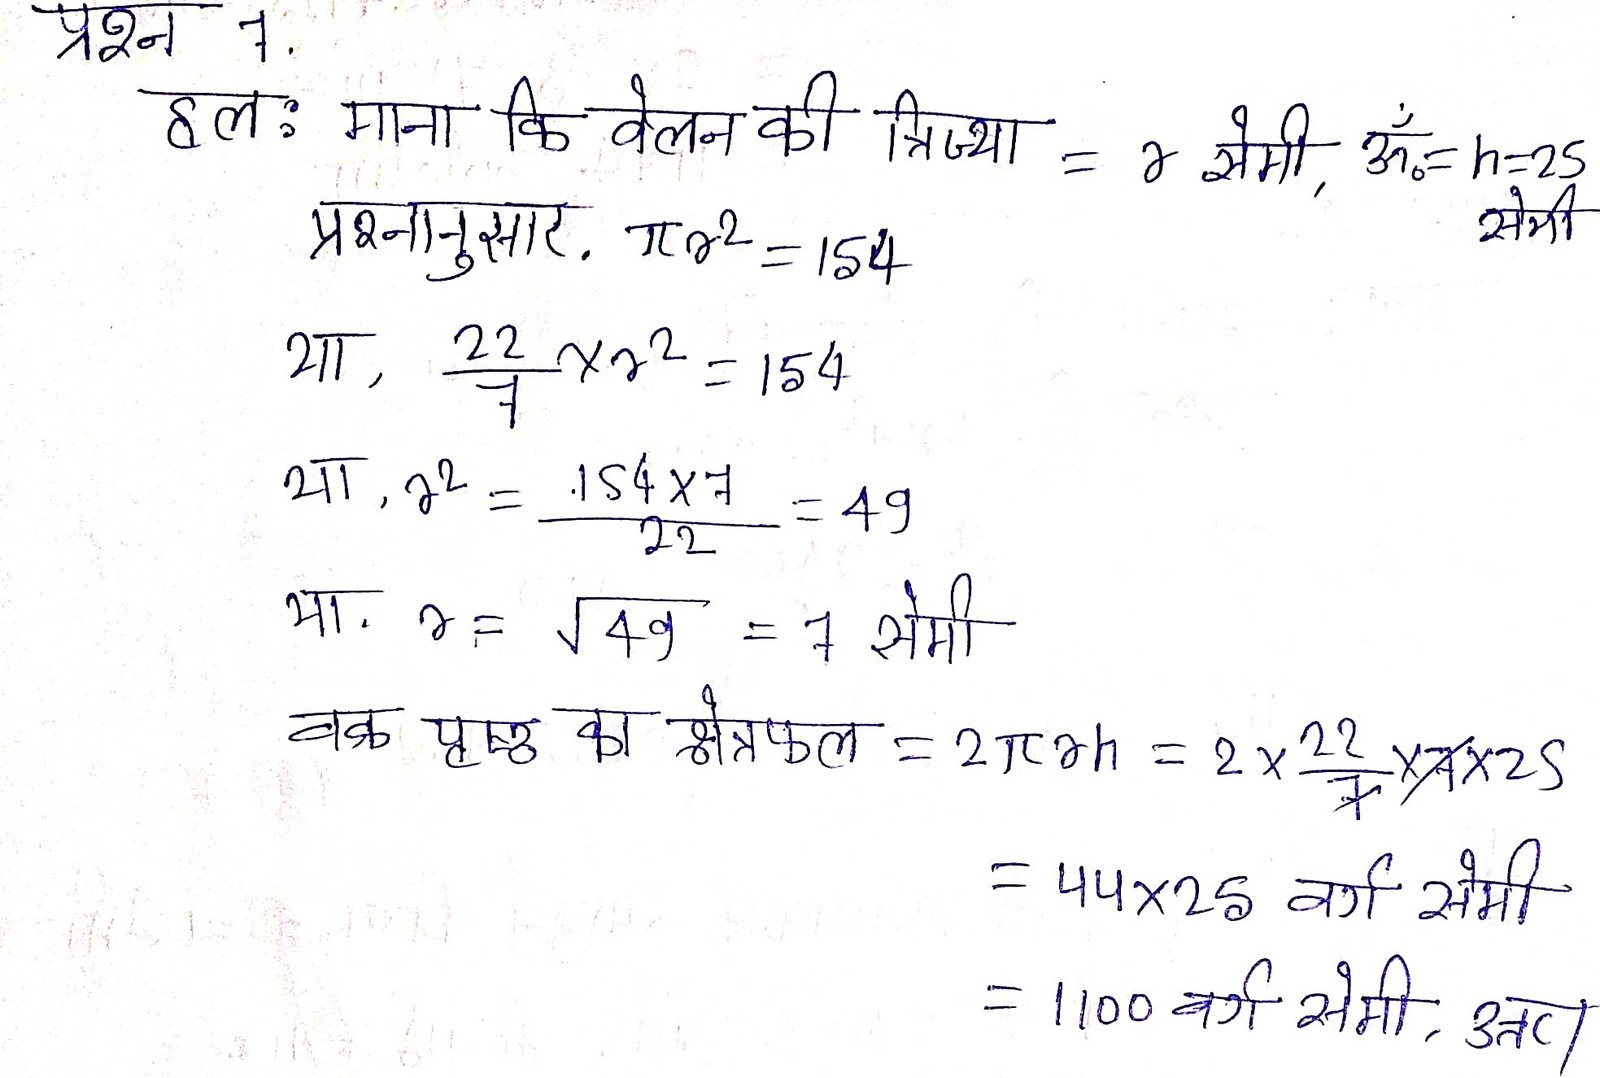 प्रश्न 7.
हलः माना कि वेलन की त्रिज्या = r सेमी, ऊँ. = h = 25
सेमी
प्रश्नानुसार. πr² = 154
या, 22/7 × r² = 154
या, r² = 154 × 7 / 22 = 49
या. r = √49 = 7 सेमी
वक्र पृष्ठ का क्षेत्रफल = 2πrh = 2 × 22/7 × 7 × 25
= 44 × 25 वर्ग सेमी
= 1100 वर्ग सेमी, उत्तर